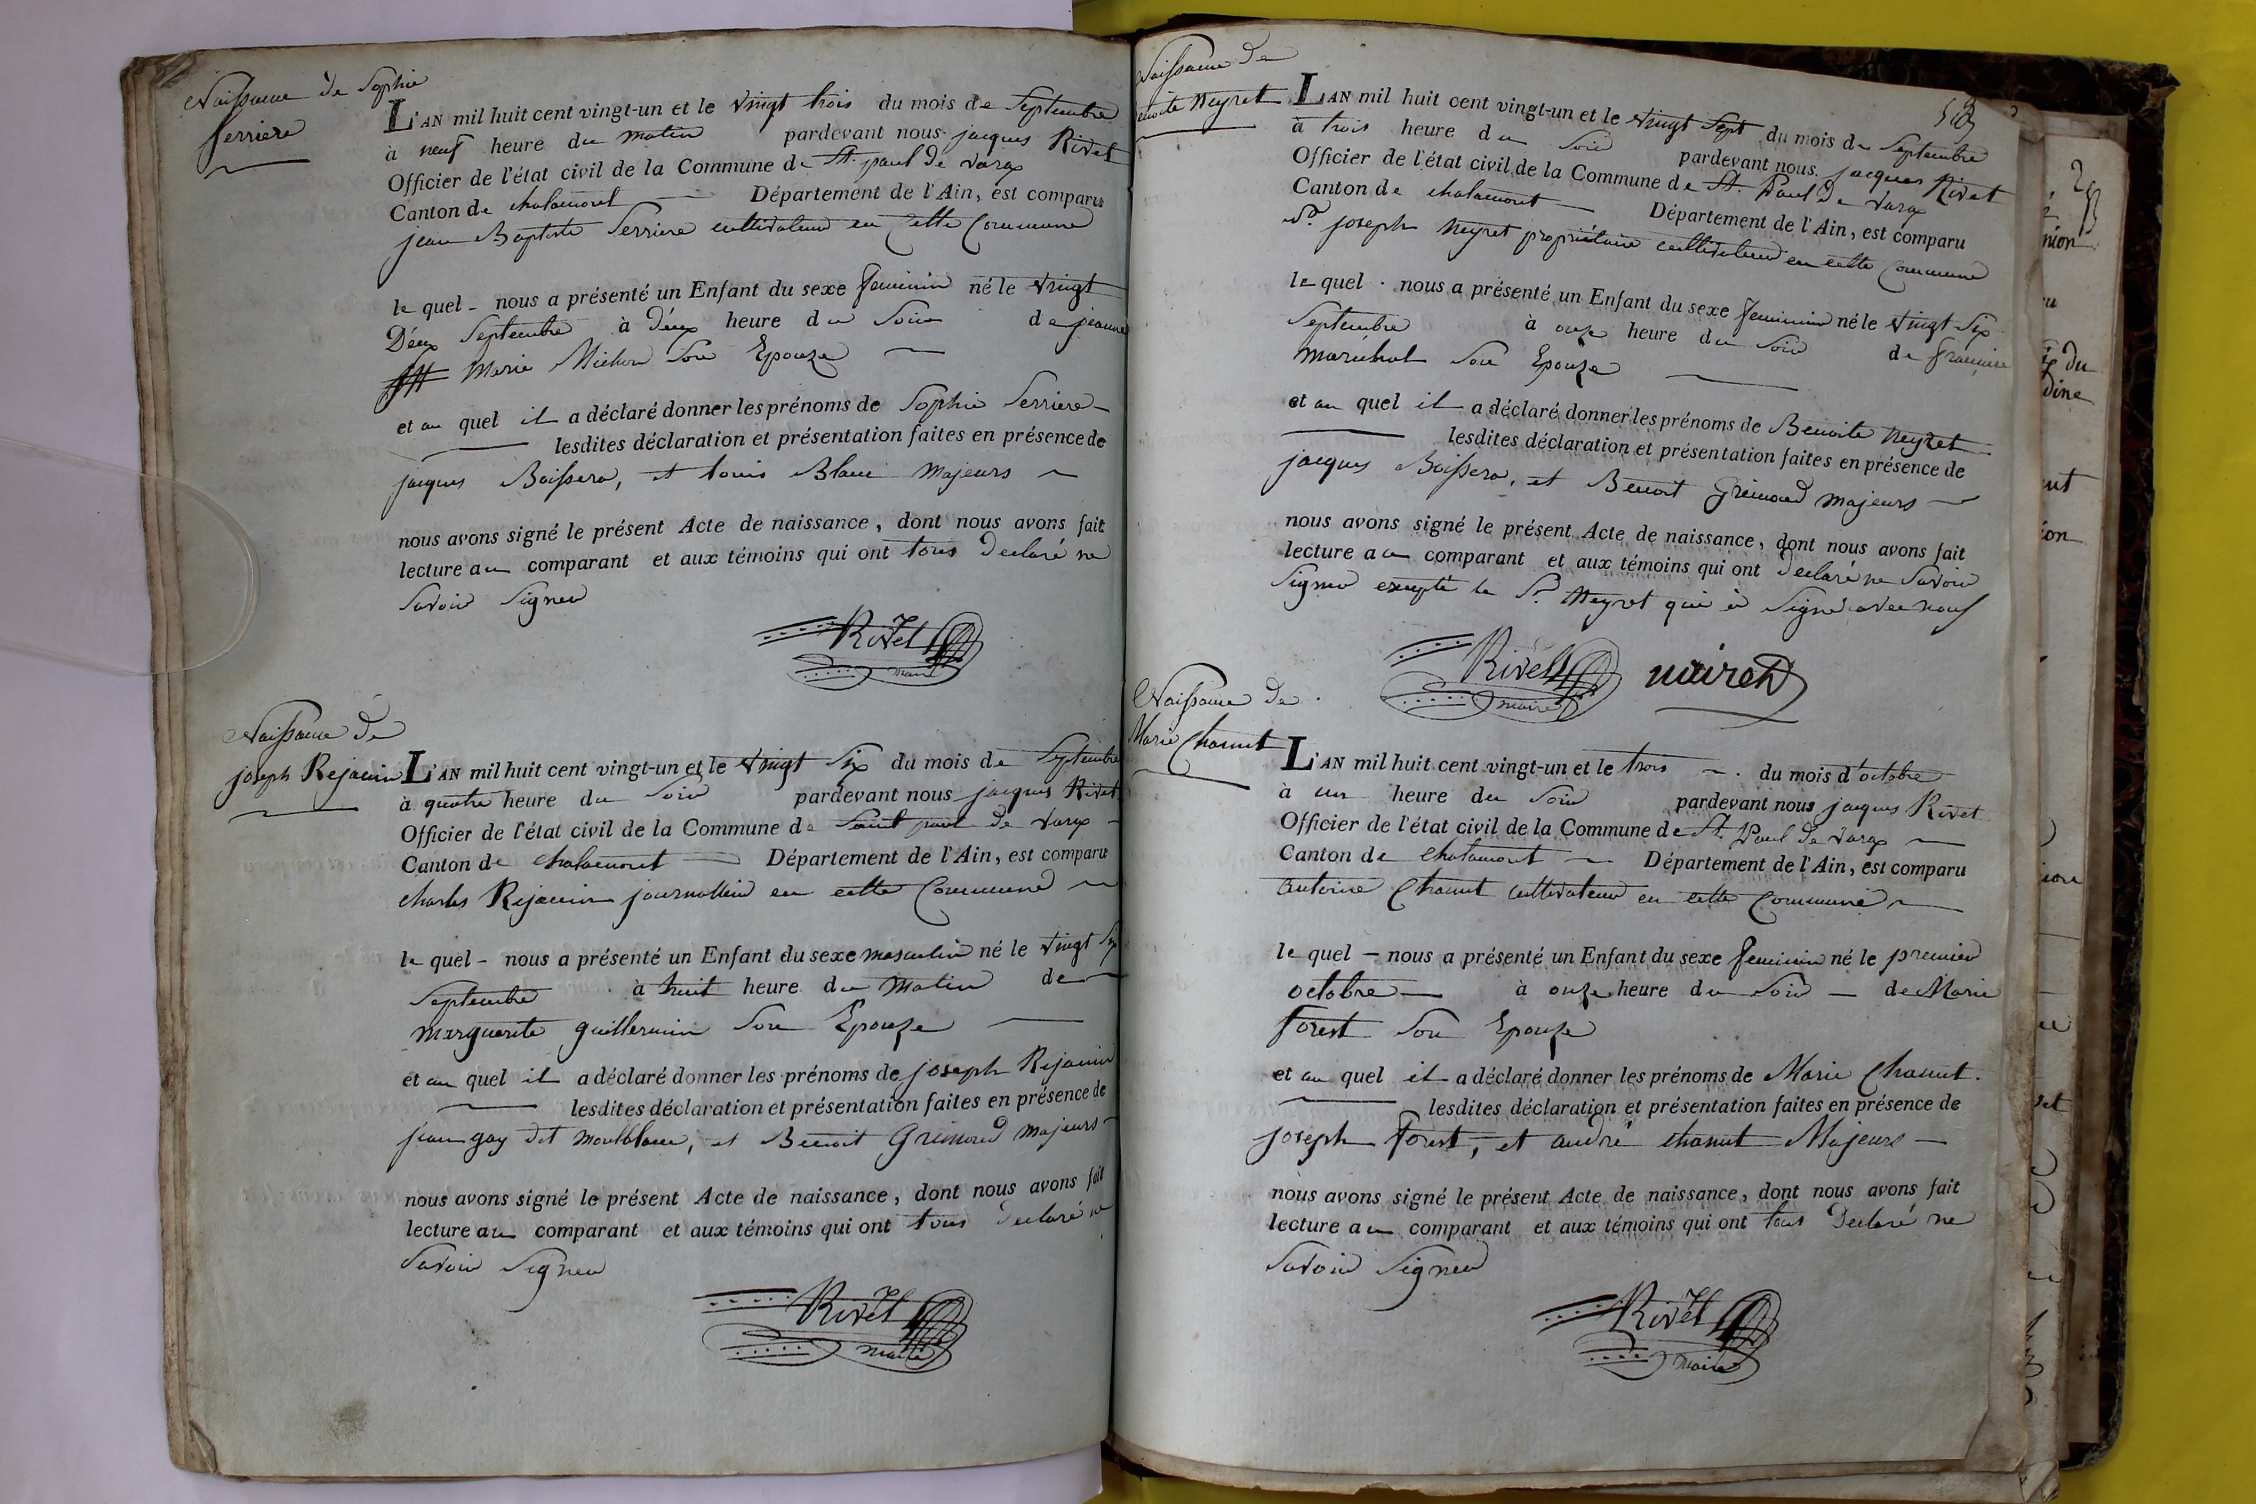 Naissance de Sophie
Serriere
L'AN mil huit cent vingt-un et le vingt trois du mois de Septembre
à neuf heure du matin pardevant nous jacques Rivet
Officier de l'état civil de la Commune de St. paul de varax
Canton de chalamont Département de l'Ain, est comparu
jean Baptiste Serriere cultivateur en cette Commune
le quel - nous a présenté un Enfant du sexe feminin né le vingt
Déux Septembre à déux heure du Soir de jeanne
Marie Michon Son Epouze
et au quel il a déclaré donner les prénoms de Sophie Serriere
lesdites déclaration et présentation faites en présence de
jacques Boissera, et Louis Blanc majeurs
nous avons signé le présent Acte de naissance, dont nous avons fait
lecture au comparant et aux témoins qui ont tous declaré ne
Savoir Signer
Rivet
maire
Naissance de
joseph Rejanin
L'AN mil huit cent vingt-un et le vingt Six du mois de Septembre
à quatre heure du Soir pardevant nous jacques Rivet
Officier de l'état civil de la Commune de Saint paul de varax
Canton de chalamont Département de l'Ain, est comparu
charles Rejanin journallier en cette Commune
le quel - nous a présenté un Enfant du sexe masculin né le vingt Six
Septembre à huit heure du Matin de
marguerite guillermin Son Epouze
et au quel il a déclaré donner les prénoms de joseph Rejanin
lesdites déclaration et présentation faites en présence de
jean gay dit montblanc, et Benoit Grimaud majeurs
nous avons signé le présent Acte de naissance, dont nous avons fait
lecture au comparant et aux témoins qui ont tous declaré ne
Savoir Signer
Rivet
maire
58
Naissance de
Benoite Neyret
L'AN mil huit cent vingt-un et le vingt Sept du mois de Septembre
à trois heure du Soir pardevant nous jacques Rivet
Officier de l'état civil de la Commune de St. Paul De varax
Canton de chalamont Département de l'Ain, est comparu
Sr. joseph Neyret propriétaire cultivateur en cette Commune
le quel nous a présenté un Enfant du sexe feminin né le vingt Six
Septembre à onze heure du Soir de francoise
maréchal Son Epouze
et au quel il a déclaré donner les prénoms de Benoite Neyret
lesdites déclaration et présentation faites en présence de
jacques Boissera, et Benoit Grimaud majeurs
nous avons signé le présent Acte de naissance, dont nous avons fait
lecture au comparant et aux témoins qui ont declaré ne Savoir
Signer excepté le Sr. Neyret qui à Signé avec nous
Rivet nairet
maire
Naissance de
Marie Chanut
L'AN mil huit cent vingt-un et le trois du mois d'octobre
à un heure du Soir pardevant nous jacques Rivet
Officier de l'état civil de la Commune de St. Paul de varax
Canton de chalamont Département de l'Ain, est comparu
antoine Chanut cultivateur en cette Commune
le quel - nous a présenté un Enfant du sexe feminin né le premier
octobre à onze heure du Soir - de Marie
forest Son Epouze
et au quel il a déclaré donner les prénoms de Marie Chanut.
lesdites déclaration et présentation faites en présence de
joseph forest, et andré chanut Majeurs
nous avons signé le présent Acte de naissance, dont nous avons fait
lecture au comparant et aux témoins qui ont tous declaré ne
Savoir Signer
Rivet
maire